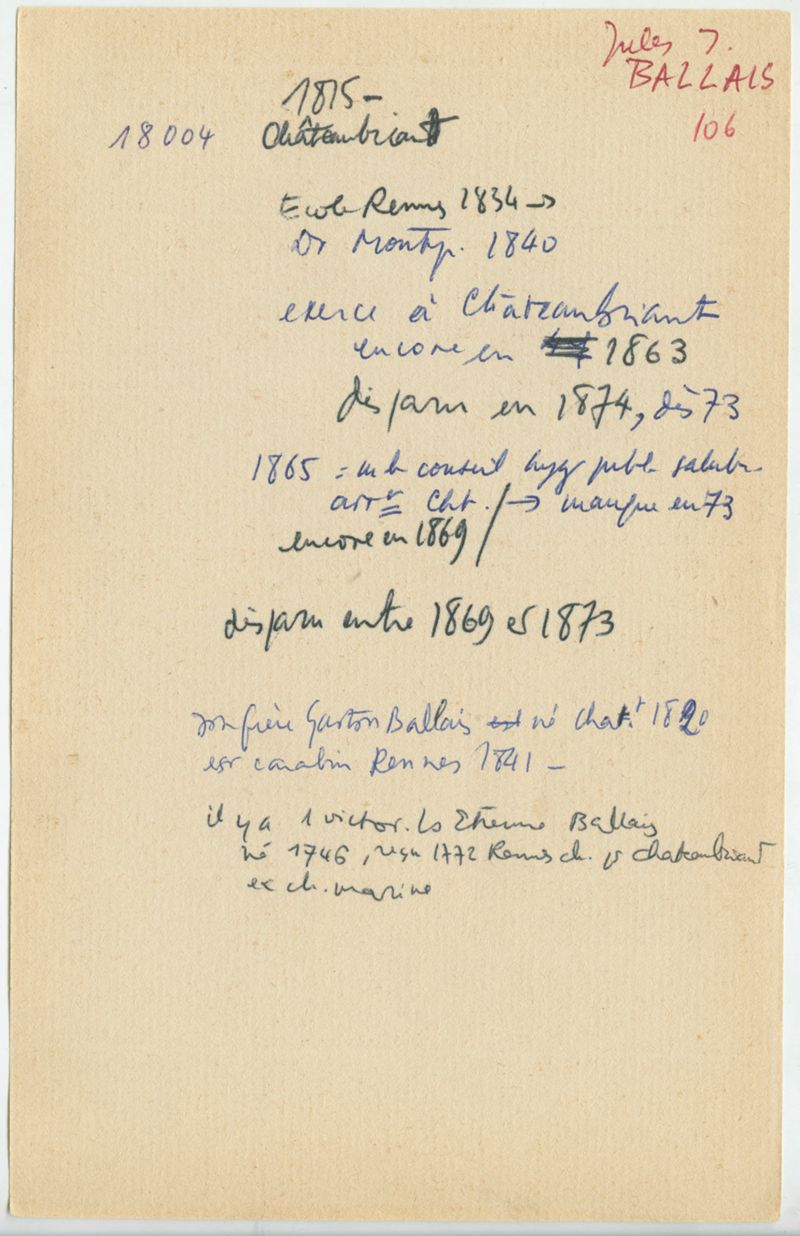 Jules J.
BALLAIS
106
1815 -
18004 Châteaubriant
Ecole Rennes 1834 →
Dr Montp. 1840
exerce à Châteaubriant
encore en 1863
disparu en 1874, dès 73
1865 = mb conseil hyg publ salubr
arrt Cht. / → manque en 73
encore en 1869
disparu entre 1869 et 1873
son frère Gaston Ballais est né Chat.t 1820
est carabin Rennes 1841 -
il y a 1 victor. Ls Etienne Ballais
né 1746, reçu 1772 Rennes ch. pr chateaubriant
ex ch. marine